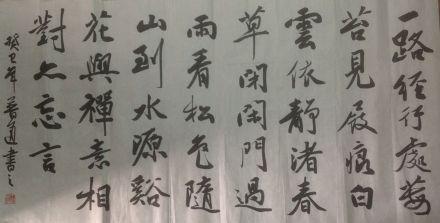 一路經行處莓
苔見屐痕白
雲依靜渚春
草閑閑門過
雨看松色隨
山到水源谿
花與禪意相
對亦忘言
癸巳年書之